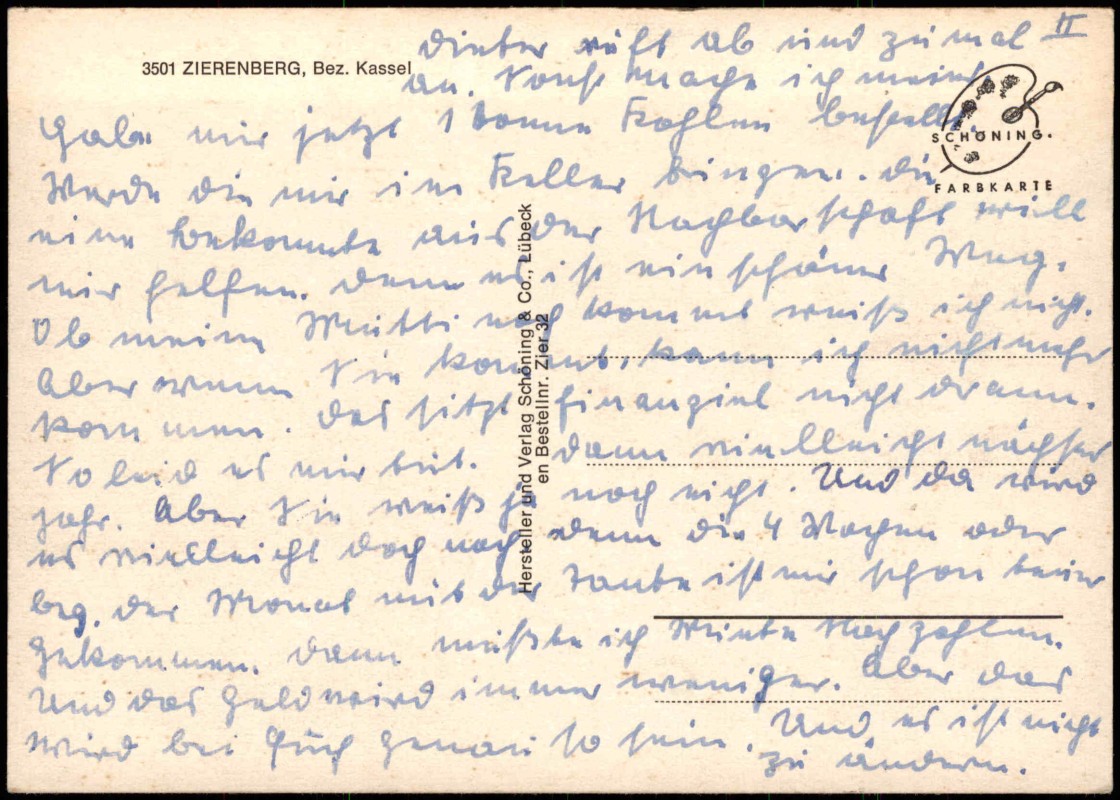 II
Dieter ruft ab und zu mal
3501 ZIERENBERG, Bez. Kassel
an. Sonst mache ich meins.
Habe mir jetzt 1 Tonne Kohlen bestellt.
SCHÖNING.
FARBKARTE
Werde die mir im Keller bringen. Die
eine bekannte aus der Nachbarschaft will
mir helfen. Denn es ist ein schöner Weg.
Ob meine Mutti noch kommt weiß ich nicht.
Aber wenn Sie kommt, kann ich nicht mehr
kommen. Das sitzt finanziel nicht drann.
So leid es mir tut. Dann vielleicht nächstes
Jahr. Aber Sie weiß ja noch nicht. Und da wird
es vielleicht doch noch, denn die 4 Wochen oder
bzg. der Monat mit der Tante ist mir schon teuer
gekommen. Dann müßte ich Miete Nachzahlen.
Und das Geld wird immer weniger. Aber das
wird bei Euch genau so sein. Und es ist nicht
zu ändern.
Hersteller und Verlag Schöning & Co., Lübeck
en Bestellnr. Zier 32